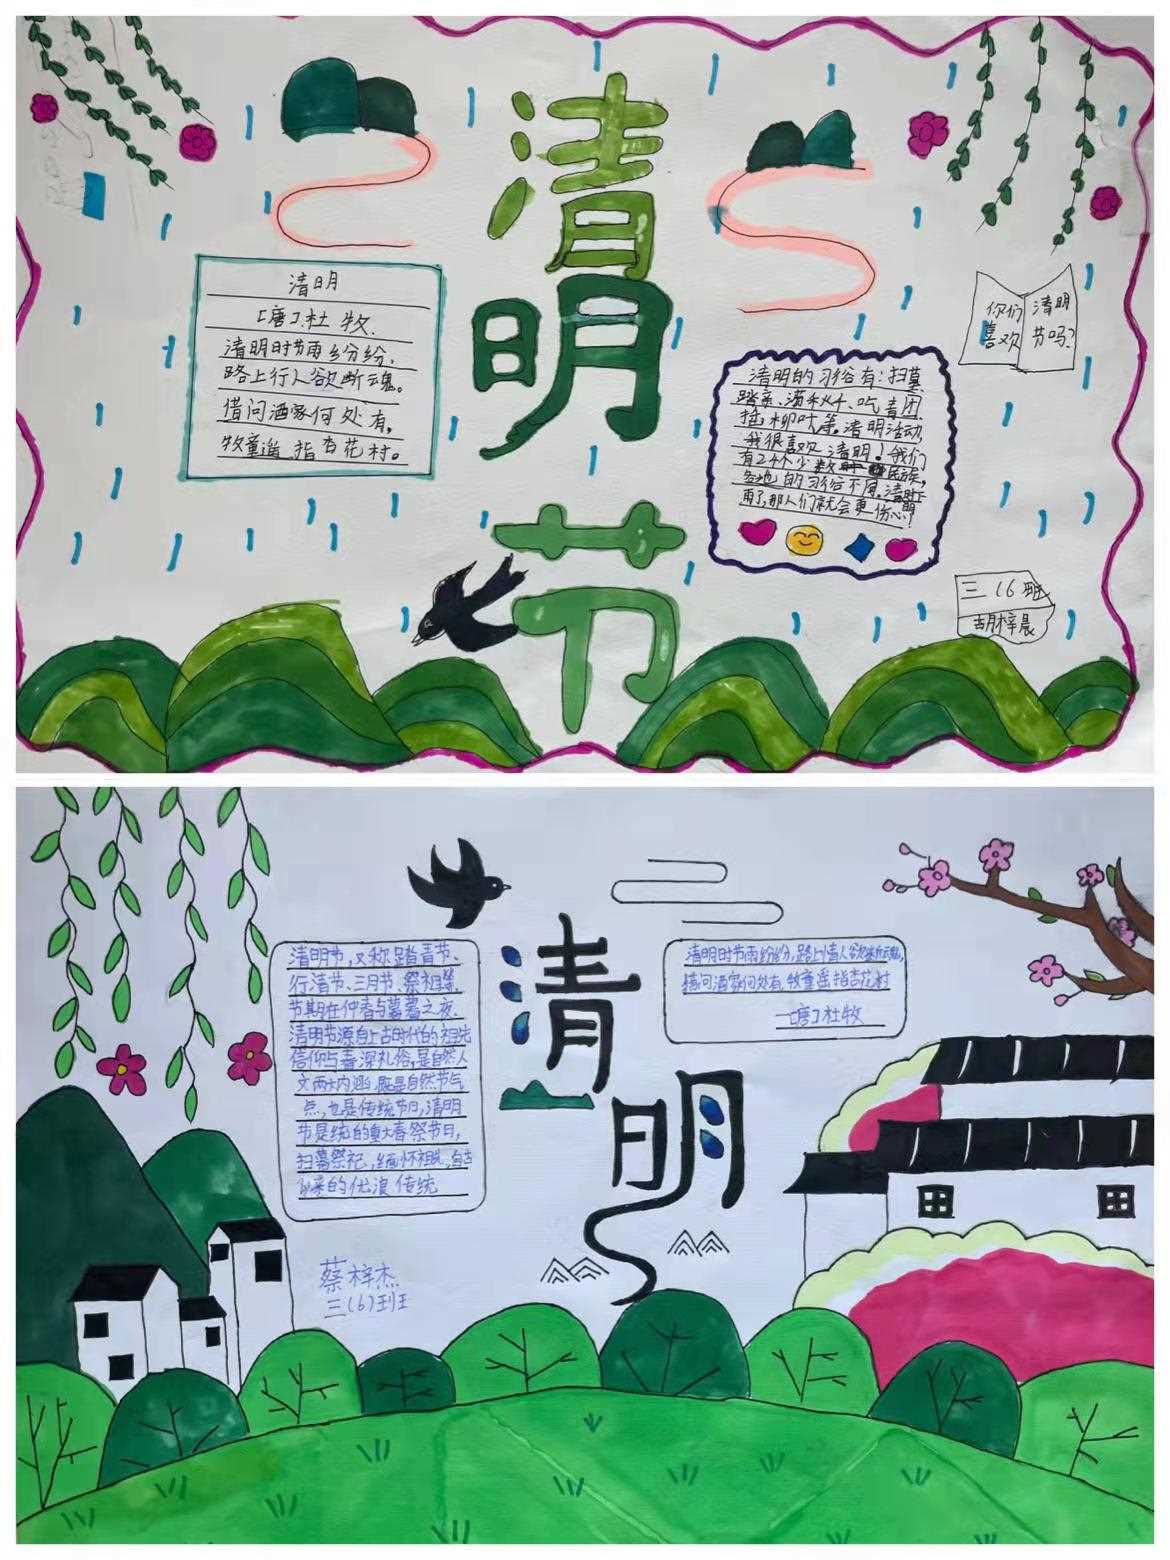 清
明
节
清明
[唐].杜 牧.
清明时节雨纷纷,
路上行人欲断魂。
借问酒家何处有,
牧童遥指杏花村。
你们
喜欢
清明
节吗?
清明的习俗有:扫墓
踏亲、荡秋千、吃青团
插柳叶等。清明活动,
我很喜欢清明!我们
有24个少数民族,
各地的习俗不同。清明
雨了,那人们就会更伤心!
三(6)班
胡梓晨
清
明
清明节,又称踏青节、
行清节、三月节、祭祖等,
节期在仲春与暮春之夜.
清明节源自上古时代的祖先
信仰与春深礼俗,是自然人
文两大内涵,既是自然节气
点,也是传统节日,清明
节是统的重大春祭节日,
扫墓祭祀,缅怀祖先,自古
以来的优浪传统
清明时节雨纷纷,路上情人欲断魂,
借问酒家何处有,牧童遥指杏花村
[唐]杜牧
蔡梓杰
三(6)班